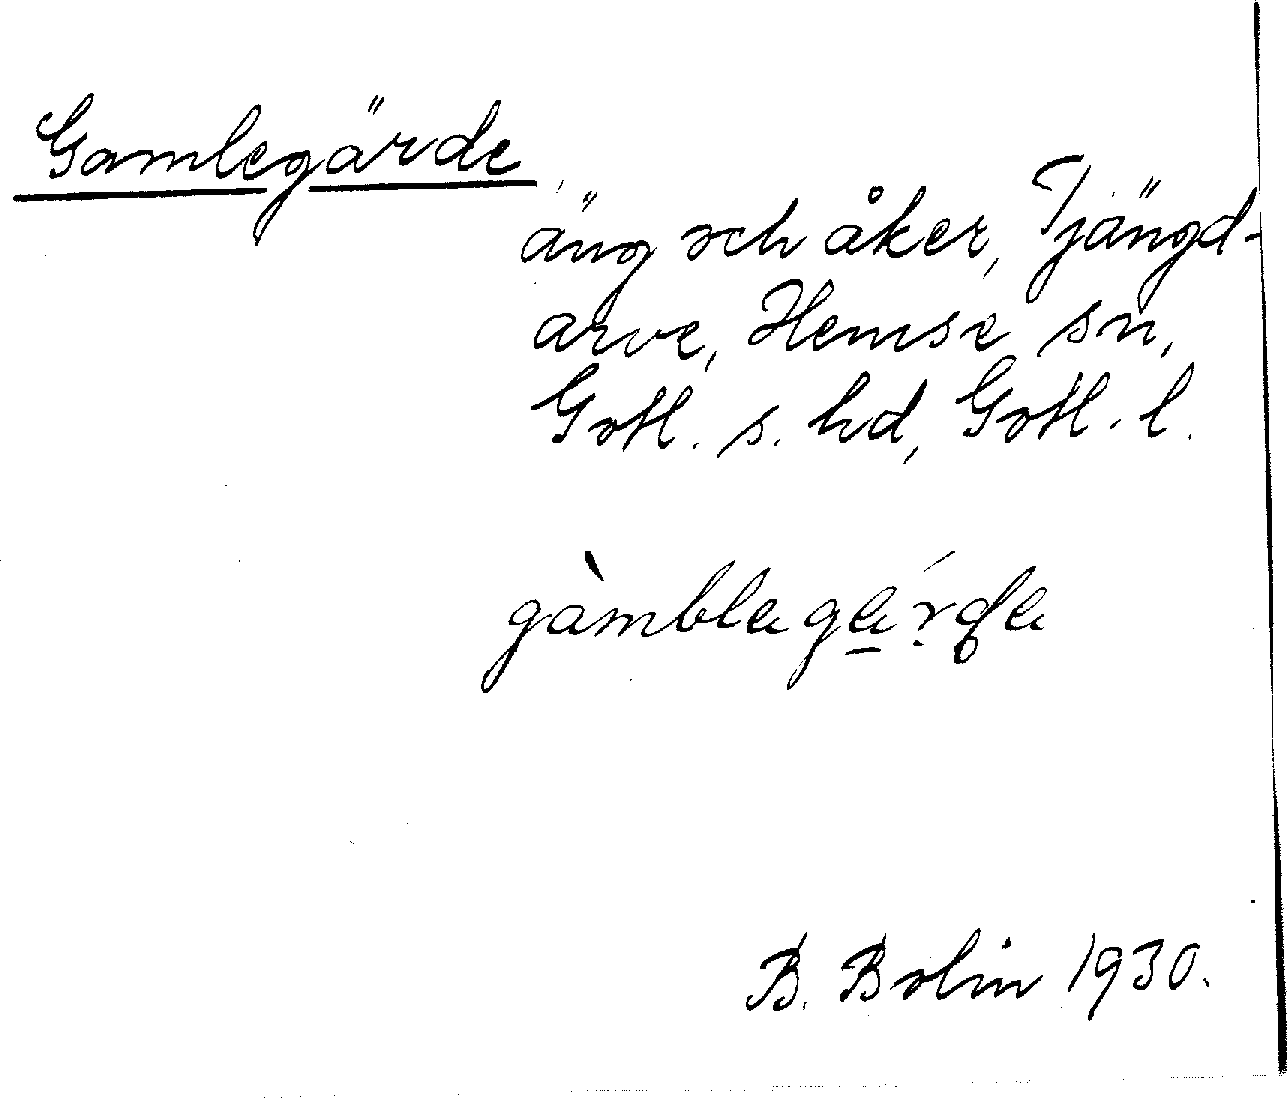 Gamlegärde
äng och åker, Tjängd-
arve, Hemse sn,
Gotl. s. hd, Gotl. l.
B. Bolin 1930.